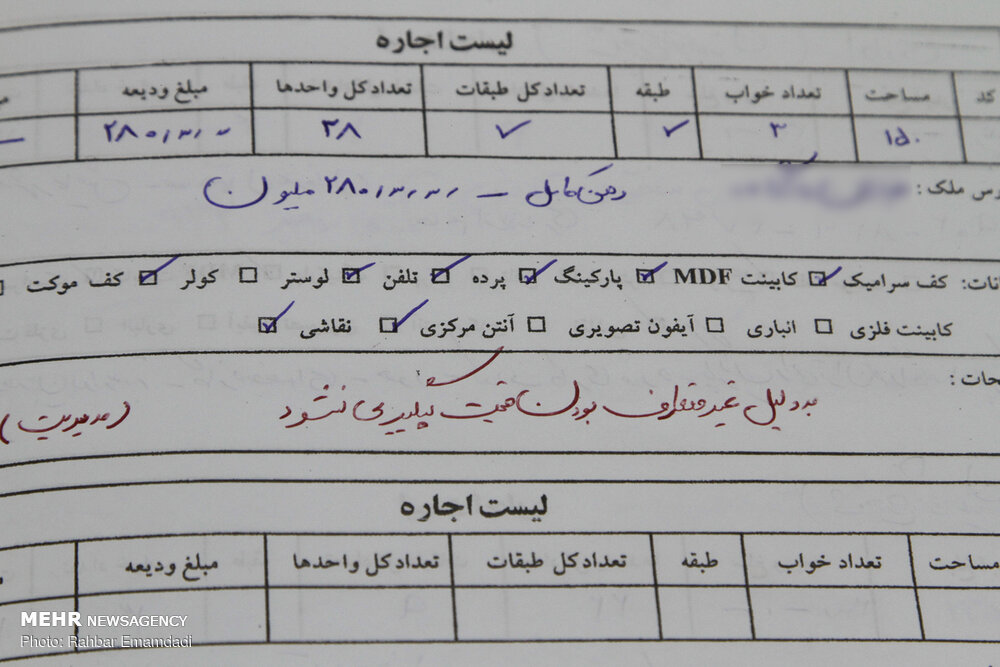 لیست اجاره
کد مساحت تعداد خواب طبقه تعدادکل طبقات تعدادکل واحدها مبلغ ودیعه
۱۵۰ ۳ ۷ ۷ ۳۸ ۲۸۰/۰۰۰/۰۰۰ —
رس ملک :
رهن کامل — ۲۸۰/۰۰۰/۰۰۰ ملیون
انات: کف سرامیک ☑ کابینت MDF ☑ پارکینگ ☑ پرده ☑ تلفن ☑ لوستر □ کولر ☑ کف موکت □
کابینت فلزی □ انباری □ آیفون تصویری □ آنتن مرکزی ☑ نقاشی ☑
حات :
به دلیل غیر متعارف بودن قیمت پیگیری نشود (مدیریت)
لیست اجاره
مساحت تعداد خواب طبقه تعدادکل طبقات تعدادکل واحدها مبلغ ودیعه
MEHR NEWSAGENCY
Photo: Rahbar Emamdadi